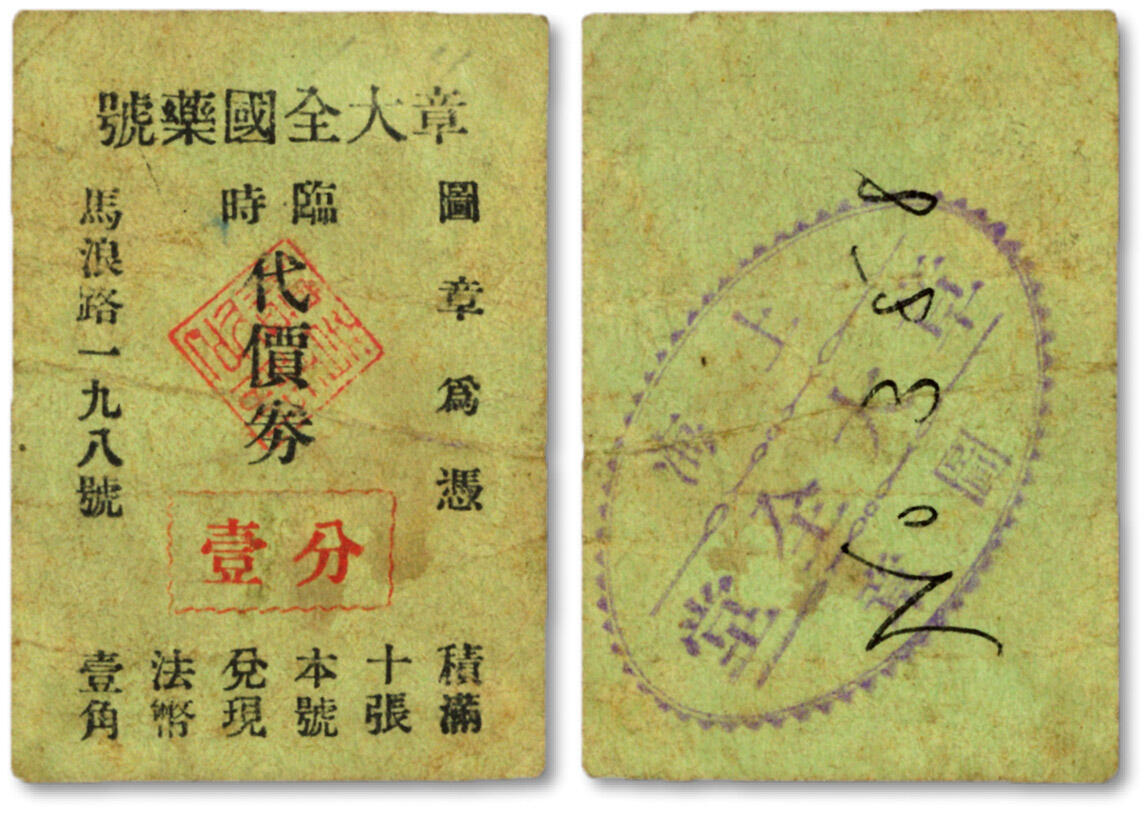 章大全國藥號
圖章爲憑
臨時
代價券
壹分
馬浪路一九八號
積滿
十張
本號
兌現
法幣
壹角
No. 358
上海
章大全堂
圖章